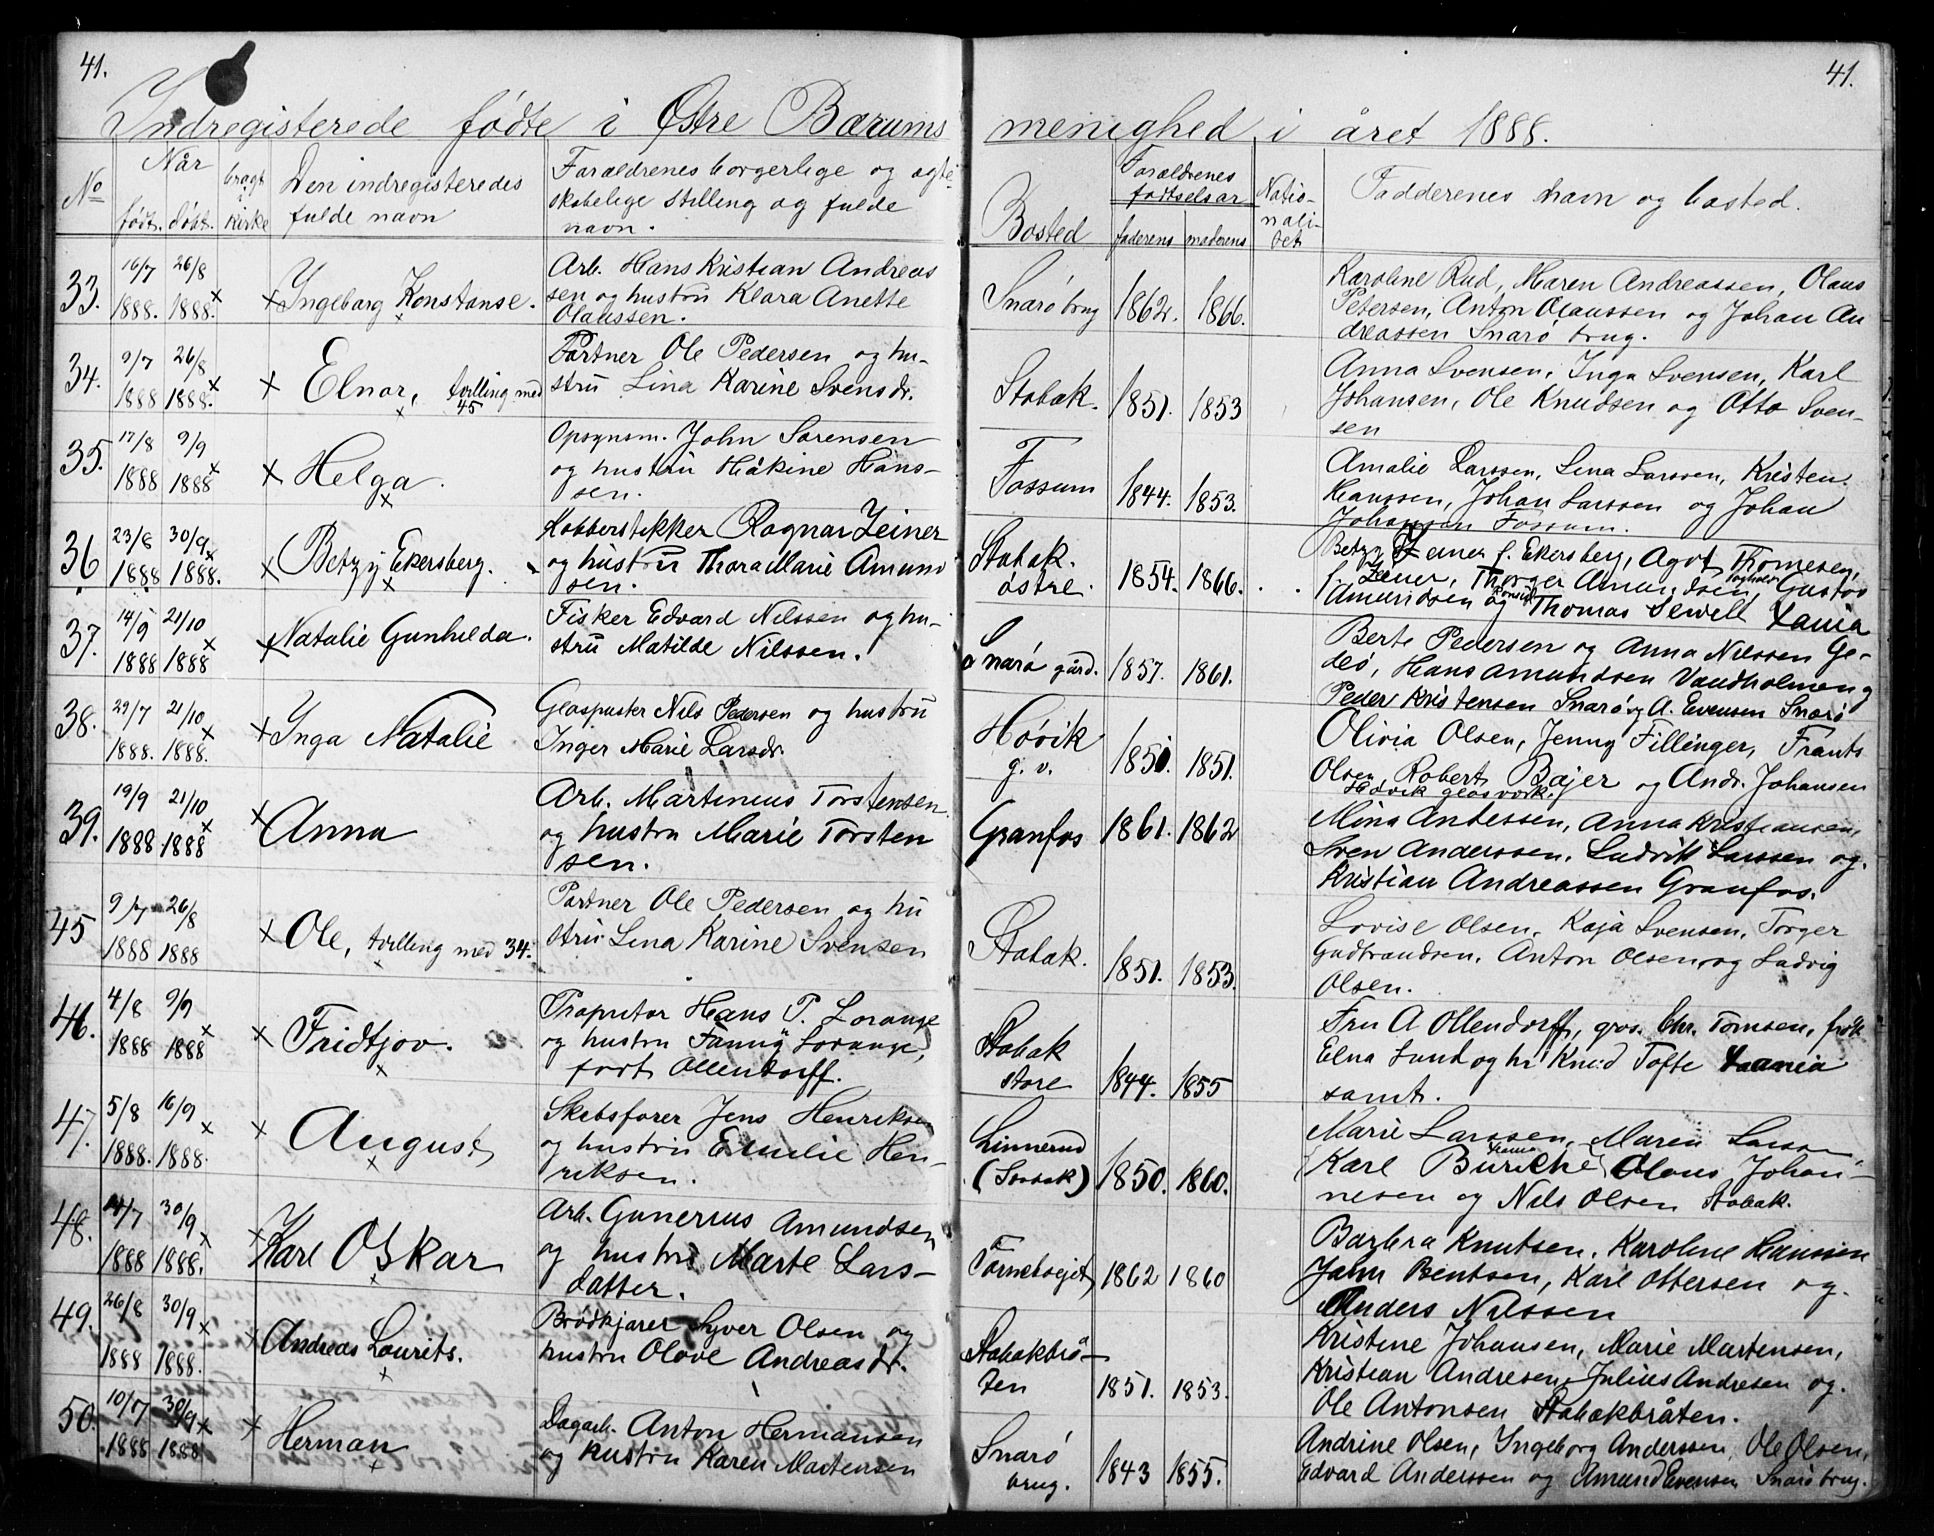 41.
41.
Indregisterede fødte i Østre Bærums menighed i året 1888.
No
Når
født. døbt.
bragt i kirke
Den indregisteredes
fulde navn
Forældrenes borgerlige og ægte-
skabelige stilling og fulde
navn.
Bosted
Forældrenes
fødselsår
faderens moderens
Natio-
nali-
tet
Faddernes navn og bosted.
33. 16/7 1888. 26/8 1888. × × Ingeborg Konstanse.
Arb. Hans Kristian Andreas
sen og hustru Klara Anette
Olaussen.
Snarö brug 1862. 1866.
Karoline Rud, Maren Andreassen, Olaus
Petersen, Anton Olaussen og Johan An
dreassen Snarö brug.
34. 9/7 1888 26/8 1888. × × Elnar, tvilling med
45
Partner Ole Pedersen og hu-
stru Lina Karine Svensdr.
Stabæk. 1851. 1853
Anna Svensen, Inga Svensen, Karl
Johansen, Ole Knudsen og Otto Sven-
sen
35. 17/8 1888 9/9 1888 × × Helga.
Opsynsm. John Sørensen
og hustru Håkine Hans-
sen.
Fossum 1844. 1853.
Amalie Larssen, Lina Larssen, Kristen
Hanssen, Johan Larssen og Johan
Johansen Fossum.
36 23/8 1888 30/9 1888. × × Betzy Ekersberg.
Kobberstekker Ragnar Zeiner
og hustru Thora Marie Amund
sen.
Stabæk.
østre. 1854. 1866.
Betzy Zeiner f. Ekersberg, Agot Thomesen,
f. Zeiner, Thorger Amundsen, Gustav
Amundsen og Thomas Sewell
37. 14/9 1888 21/10 1888 × × Natalie Gunhilda.
Fisker Edvard Nilssen og hu-
stru Matilde Nilssen.
Snarö gård. 1857. 1861.
Berte Pedersen og Anna Nilssen Ge-
deö, Hans Amundsen Vandholmen og
Peder Kristensen Snarö og A. Evensen Snarö
38. 29/7 1888. 21/10 1888. × × Inga Natalie
Glaspuster Nils Pedersen og hustru
Inger Marie Larsdr.
Hövik
g. v. 1851. 1851.
Olivia Olsen, Jenny Fillinger, Frants
Olsen, Robert Bajer og Andr. Johansen
Hövik glasværk.
39. 19/9 1888 21/10 1888 × × Anna
Arb. Martinius Torstensen
og hustru Marie Torsten
sen.
Granfos 1861. 1862
Mina Antessen, Anna Kristiansen,
Sven Anderssen, Ludvik Larssen og
Kristian Andreassen Granfos.
45 9/7 1888 26/8 1888 × Ole, tvilling med 34.
Partner Ole Pedersen og hu
stru Lina Karine Svensen
Stabæk. 1851. 1853.
Lovise Olsen, Kaja Svensen, Torger
Gudbrandsen, Anton Olsen og Ludvig
Olsen.
46. 4/8 1888 9/9 1888 × × Fridtjov.
Proprietor Hans P. Lorange
og hustru Fanny Lorange,
født Ollendorff.
Stabæk
store 1844. 1855
Fru A Ollendorff, gros. Chr. Tomsen, frøk
Elna Lund og hr Knud Tofte
samt.
47. 5/8 1888. 16/9 1888. × × August
Skibsfører Jens Henriksen
og hustru Emilie Hen-
riksen.
Linnerud
(Stabæk) 1850. 1860.
Marie Larssen, Maren Larsen
Karl Olaus Johan-
nesen og Nils Olsen Stabæk.
48. 14/7 1888 30/9 1888. × × Karl Oskar
Arb. Gunerius Amundsen
og hustru Marte Lars-
datter.
Fornebøejet 1862 1860
Barbra Knutsen, Karoline Hanssen
John Bentsen, Karl Ottersen og
Anders Nilssen
49. 26/8 1888 30/9 1888. × × Andreas Lourits.
Brödkjører Syver Olsen og
hustru Olave Andreasdt.
Stabækbrå-
ten 1851. 1853.
Kristine Johansen, Marie Martensen,
Kristian Andresen, Julius Andresen og
Ole Antonsen Stabækbråten.
50. 10/7 1888 30/9 1888 × × Herman
Dagarb. Anton Hermansen
og hustru Karen Martensen
Snarö
brug. 1843 1855.
Andrine Olsen, Ingeborg Anderssen, Ole Olsen,
Edvard Anderssen og Amund Evensen Snarö brug.